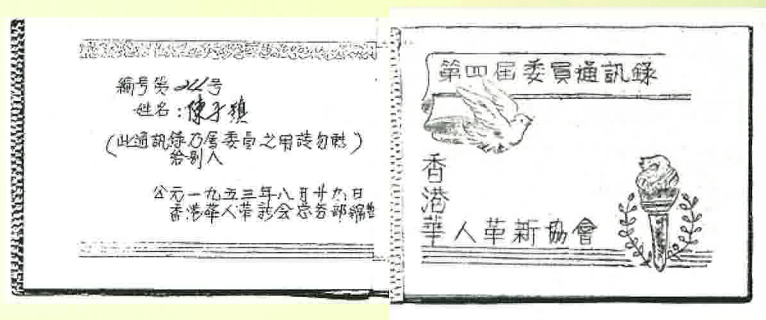 編号第 号
姓名：陳子
(此通訊錄乃 委員之用請勿 )
給別人
公元一九五三年八月廿九日
香港華人革新会总务部編
第四届委員通訊錄
香港
華人革新協會